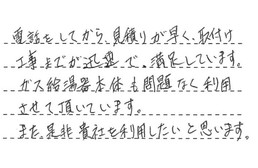 電話をしてから、見積りが早く、取付け
工事までが迅速で、満足しています。
ガス給湯器本体も問題なく利用
させて頂いています。
また是非貴社を利用したいと思います。